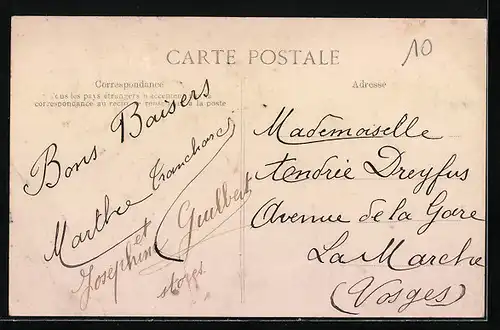 CARTE POSTALE
10
Correspondance
Tous les pays étrangers n'acceptent pas la
correspondance au recto, se renseigner à la poste
Bons Baisers
Marthe Tranchard
et
Josephine Guilbert
Adresse
Mademoiselle
Andrée Dreyfus
Avenue de la Gare
La Marche
(Vosges)